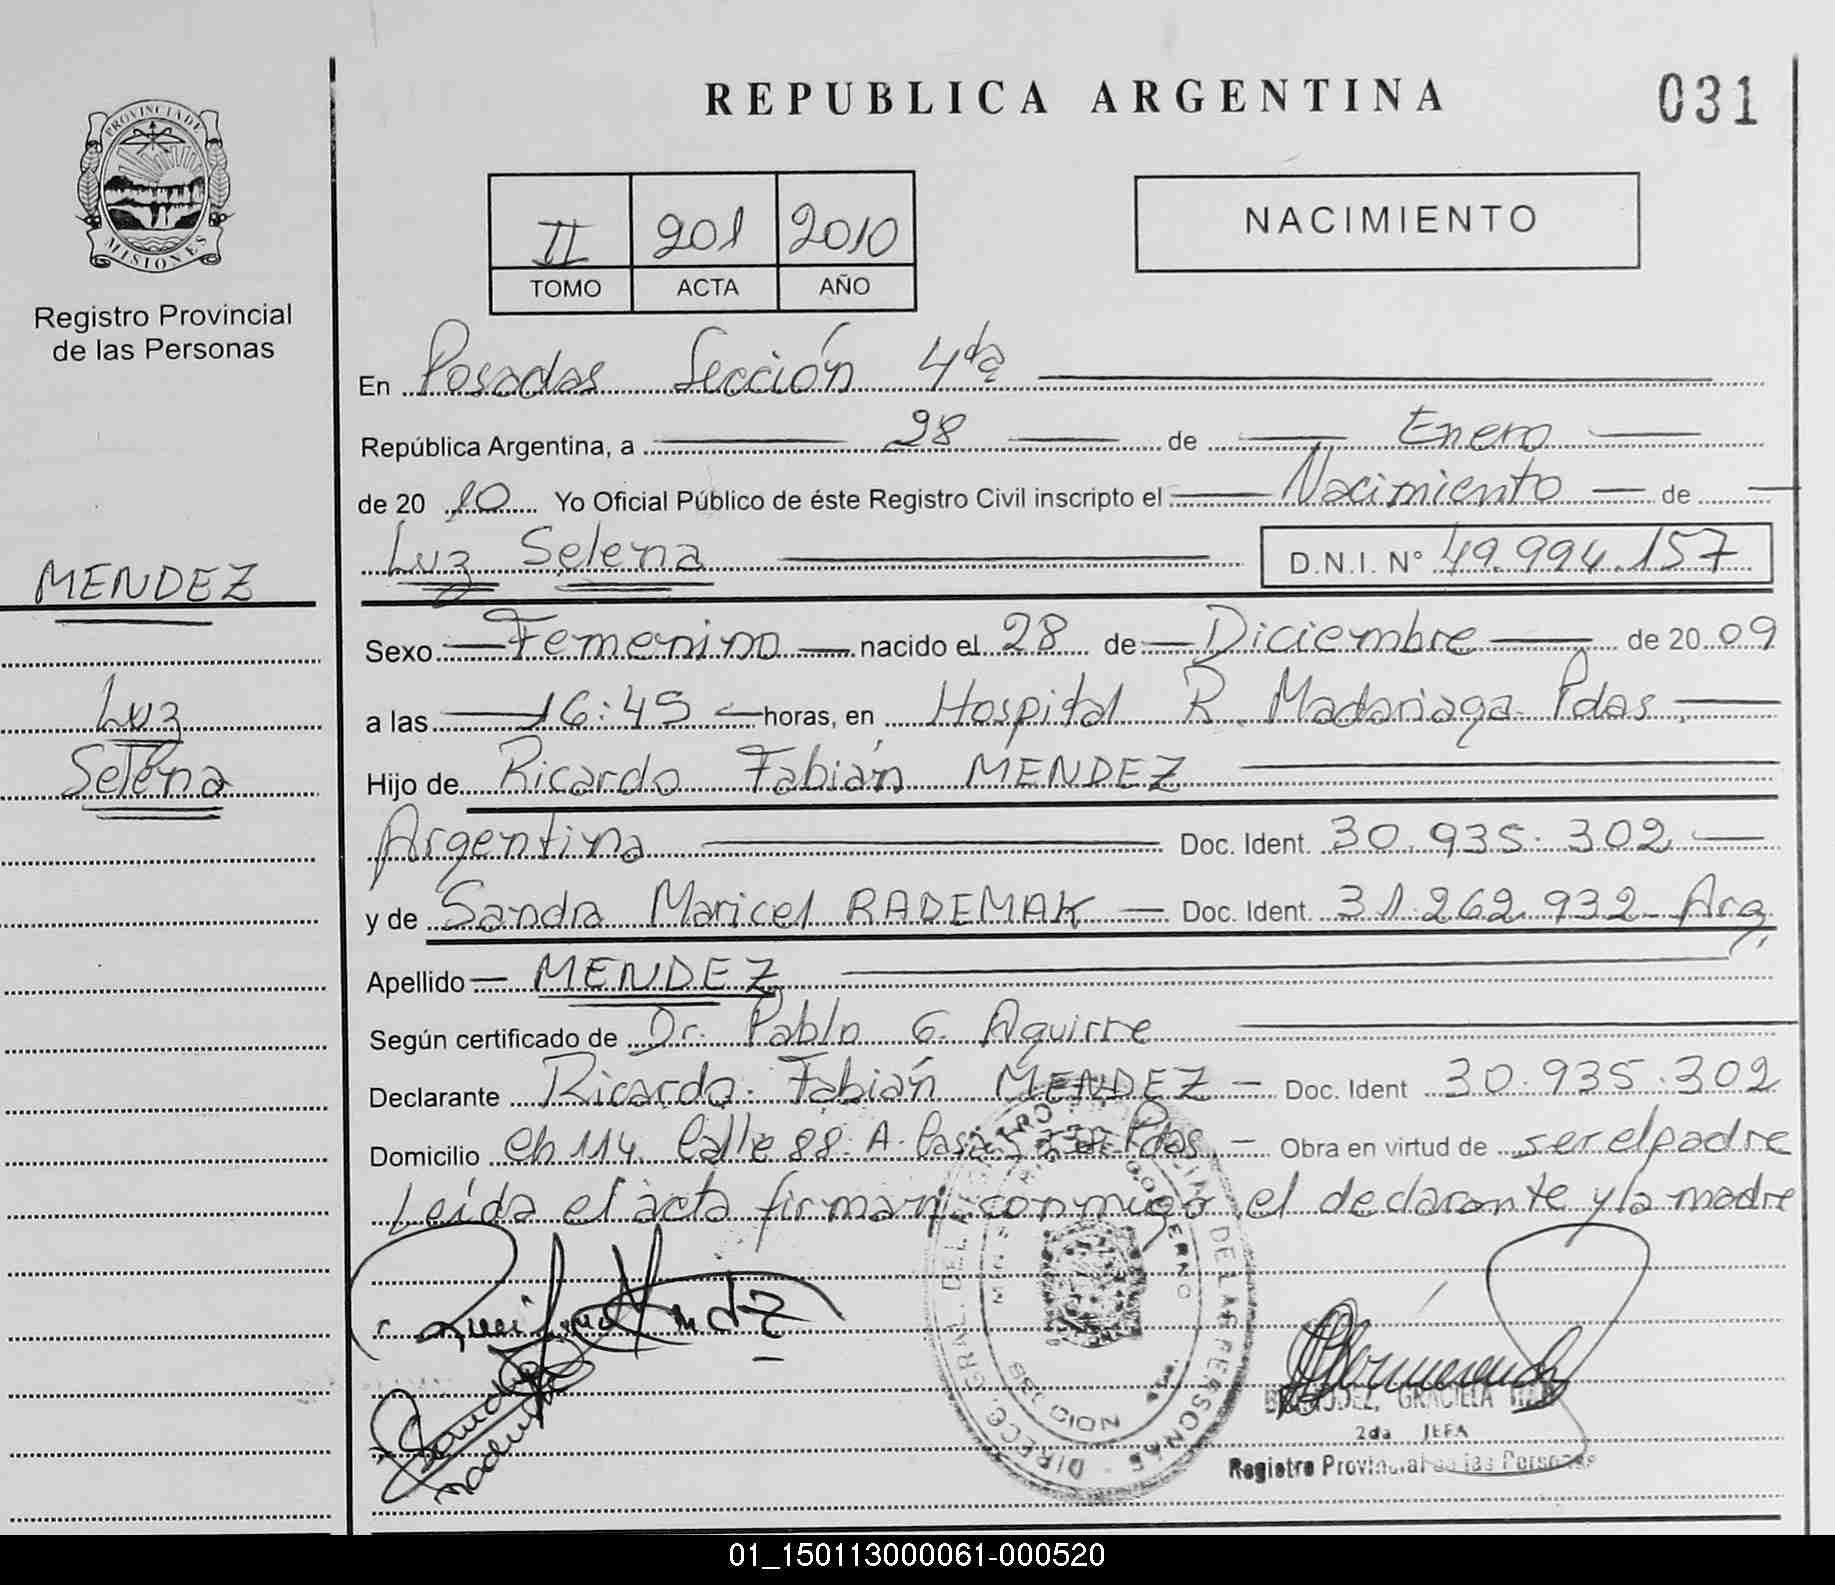 REPUBLICA ARGENTINA
031
PROVINCIA DE
MISIONES
Registro Provincial
de las Personas
II 201 2010
TOMO ACTA AÑO
NACIMIENTO
En Posadas Sección 4da
República Argentina, a 28 de Enero
de 20 10 Yo Oficial Público de éste Registro Civil inscripto el Nacimiento de
Luz Selena D.N.I. Nº 49.994.157
MENDEZ
Luz
Selena
Sexo Femenino nacido el 28 de Diciembre de 20 09
a las 16:45 horas, en Hospital R. Madariaga Pdas.
Hijo de Ricardo Fabián MENDEZ
Argentina Doc. Ident. 30.935.302
y de Sandra Maricel RADEMAK Doc. Ident. 31.262.932 Arg.
Apellido MENDEZ
Según certificado de Dr. Pablo G. Aguirre
Declarante Ricardo Fabián MENDEZ Doc. Ident 30.935.302
Domicilio Ch 114 Calle 88 A Pdas Obra en virtud de ser el padre
Leída el acta firman conmigo el declarante y la madre
GRACIELA
2da JEFA
Registro Provincial de las Personas
01_150113000061-000520